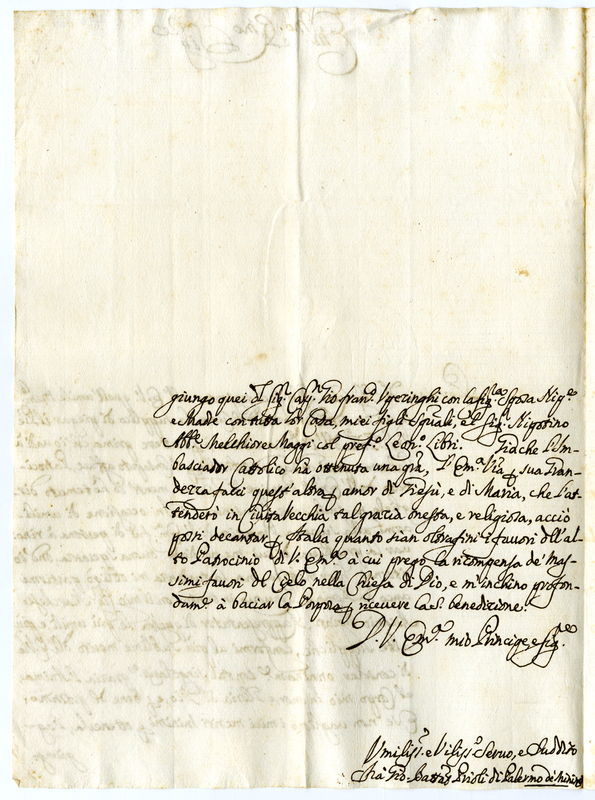 giungo quei d'Sigr Cavr Gio franco Vperinghi con la sigra Sposa Nigte
e Madre con tutta lor Casa, miei figli Spirali, e'l Sigr Nipotino
Abbe Melchiore Maggi col prefto Leono Libri. Giache l'Im-
basciador Cattolico hà ottenuta una gra, V. Ema Via sua Gran-
dezza facci quest'altra amor di Giesù, e di Maria, che l'at-
tenderò in Civita Vecchia tal grazia onesta, e religiosa, acciò
possi decantar l'Italia quanto sian oltrafini i favori dell'al-
to Patrocinio di V. Emza à cui prego la ricompensa de' Mas-
simi favori del Cielo nella Chiesa di Dio, e m'inchino profon-
damte à baciar la Porpora, ricevere la S. benedizione.
D. V. Emza mio Principe, e Sigre
Vmiliss. e Viliss. Servo, e Suddito
frà Gio. Batta Prioli di Palermo de' Minimi